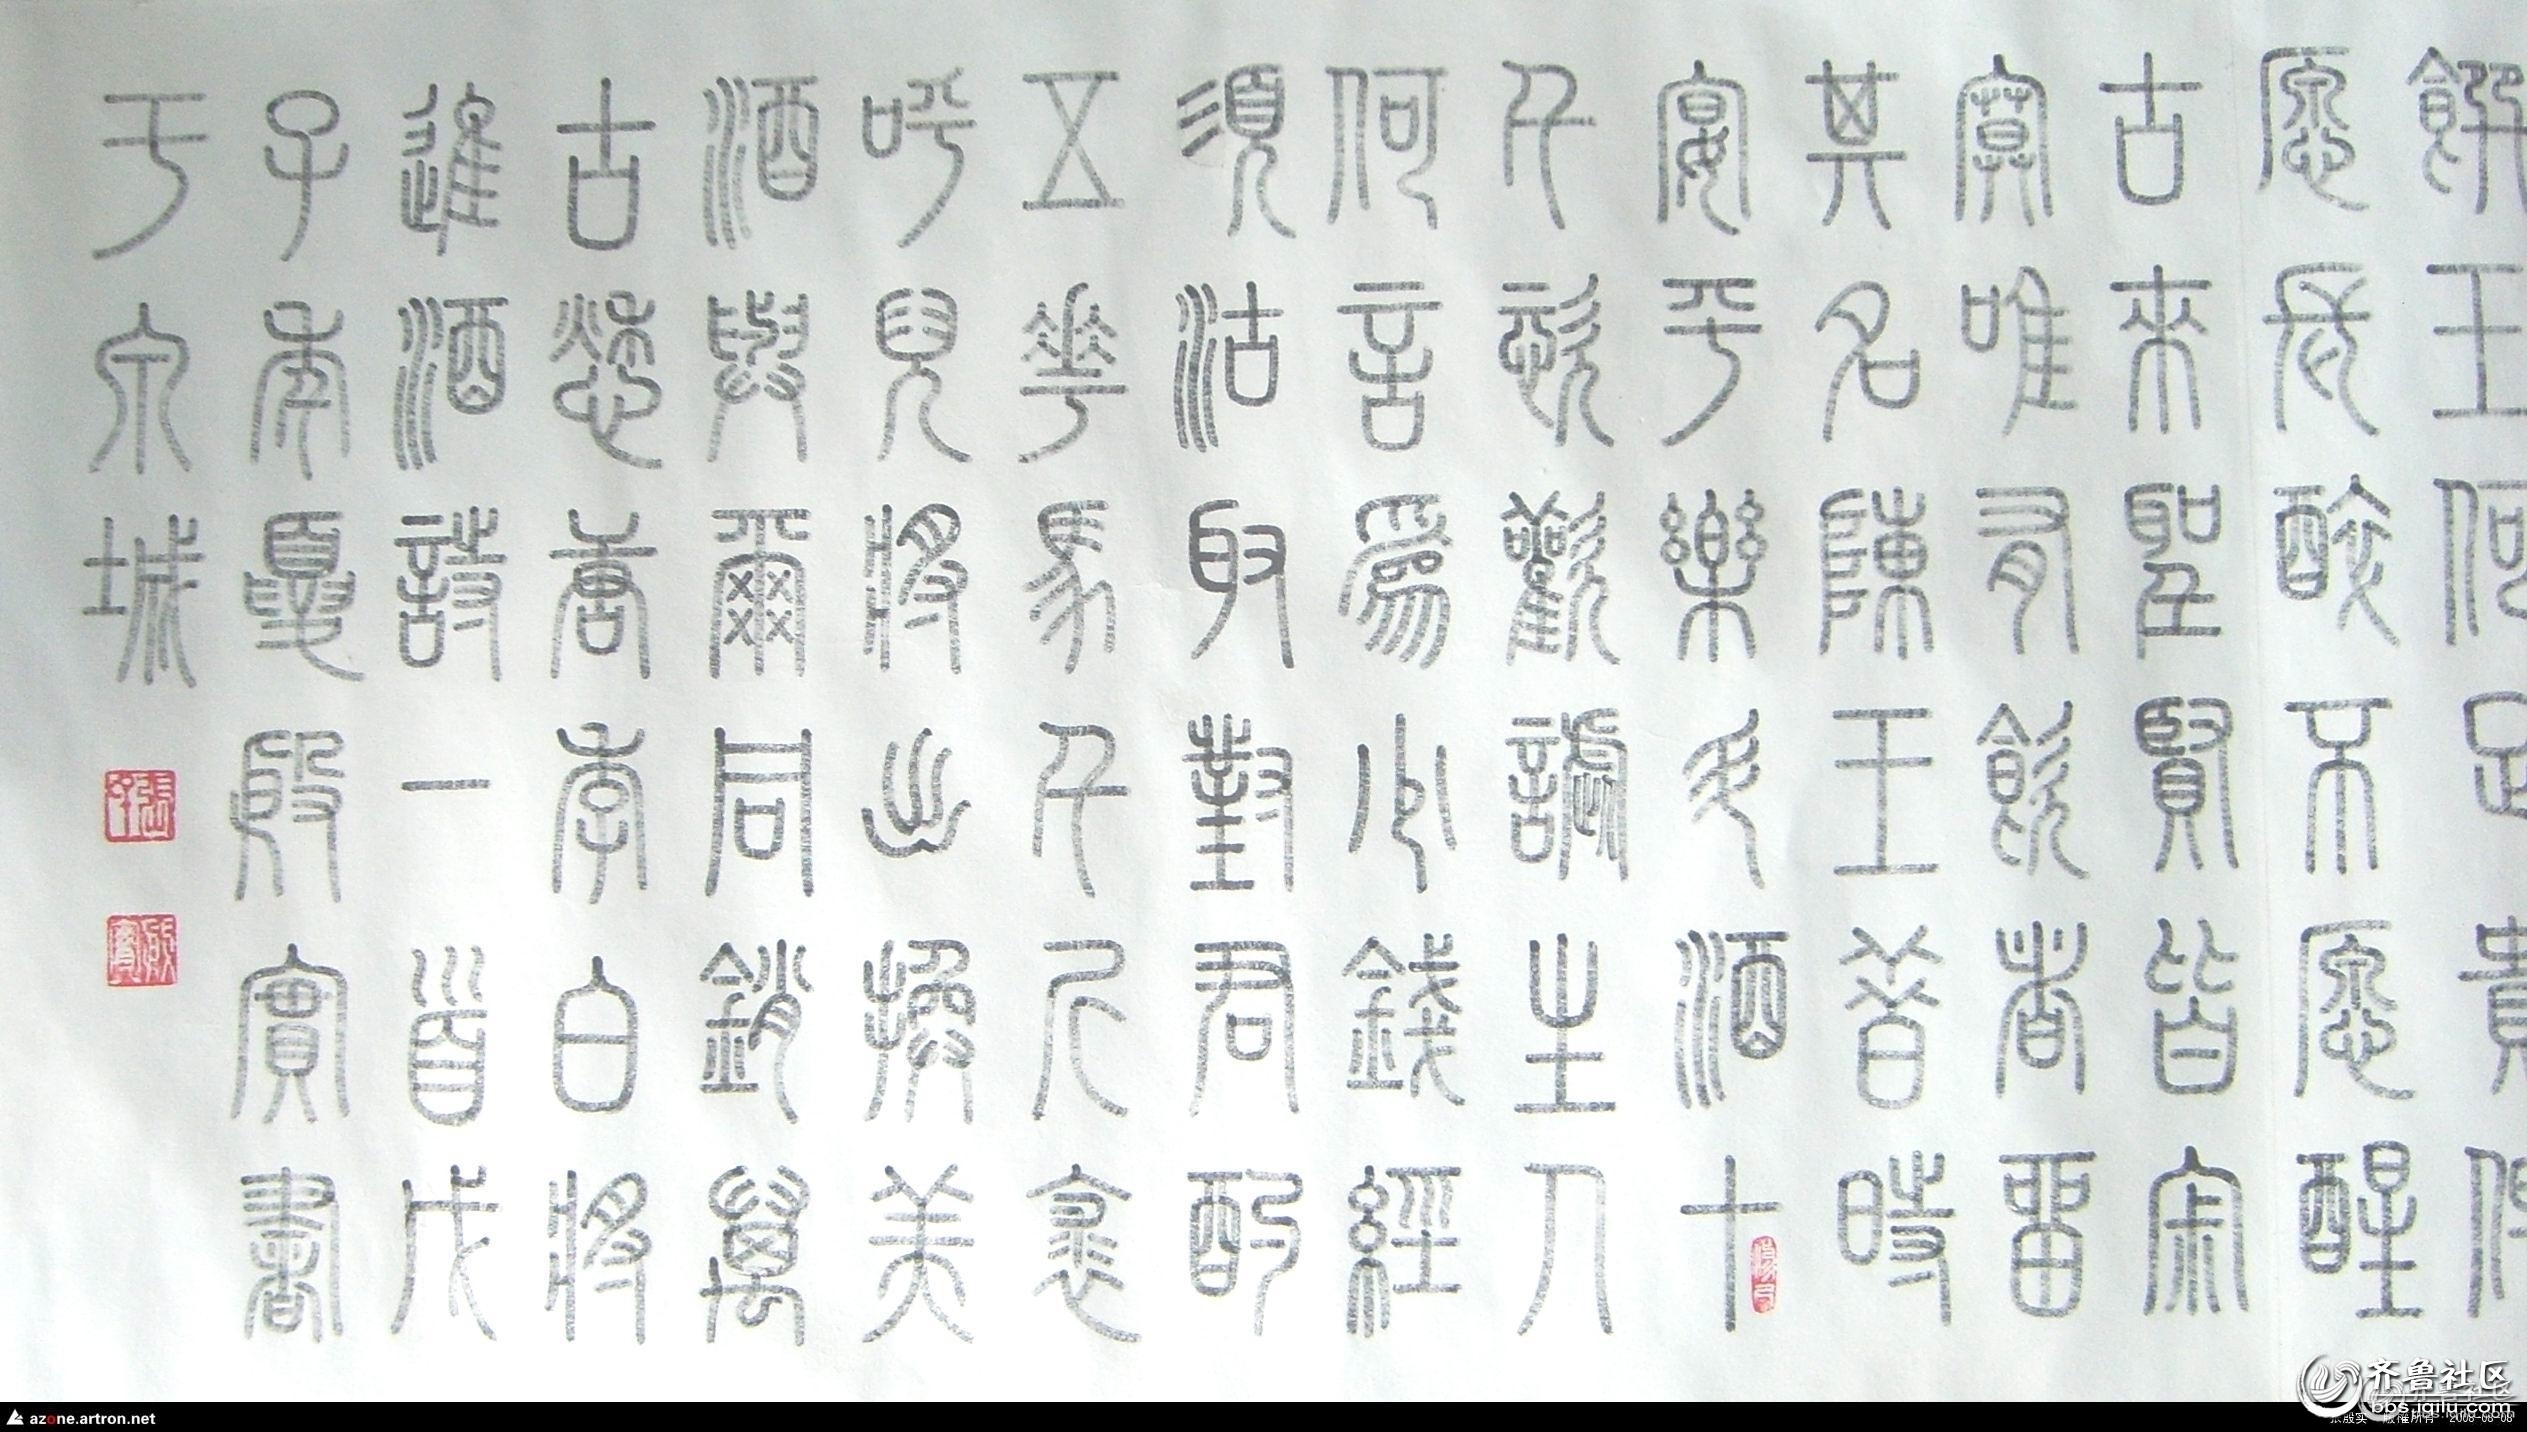 饌玉何足貴但
愿長醉不愿醒
古來聖賢皆寂
寞唯有飲者留
其名陳王昔時
宴平樂斗酒十
千恣歡謔主人
何言爲少錢經
須沽取對君酌
五花馬千裘
呼兒將出換美
酒與爾同銷萬
古愁唐李白將
進酒詩一首戊
子年夏殷實書
于泉城
殷實
azone.artron.net
齐鲁社区
bbs.iqilu.com
张殷实 版權所有 2008-08-08